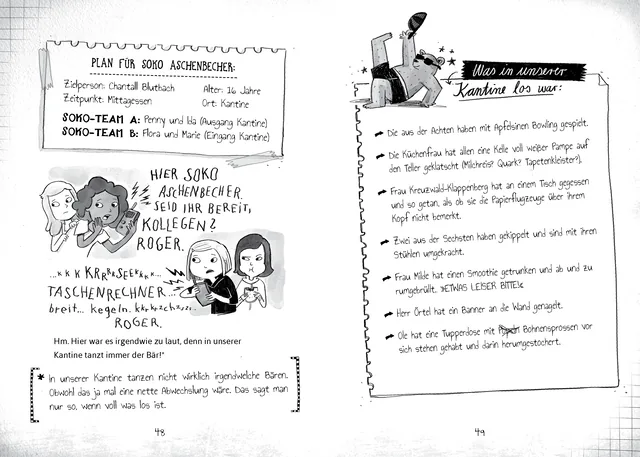 PLAN FÜR SOKO ASCHENBECHER:
Zielperson: Chantall Blutbach Alter: 16 Jahre
Zeitpunkt: Mittagessen Ort: Kantine
SOKO-TEAM A: Penny und Ida (Ausgang Kantine)
SOKO-TEAM B: Flora und Marie (Eingang Kantine)
HIER SOKO
ASCHENBECHER.
SEID IHR BEREIT,
KOLLEGEN?
ROGER.
TASCHENRECHNER...
breit... kegeln.
ROGER.
Hm. Hier war es irgendwie zu laut, denn in unserer
Kantine tanzt immer der Bär!*
* In unserer Kantine tanzen nicht wirklich irgendwelche Bären.
Obwohl das ja mal eine nette Abwechslung wäre. Das sagt man
nur so, wenn voll was los ist.
48
Was in unserer
Kantine los war:
Die aus der Achten haben mit Apfelsinen Bowling gespielt.
Die Küchenfrau hat allen eine Kelle voll weißer Pampe auf
den Teller geklatscht (Milchreis? Quark? Tapetenkleister?).
Frau Kreuzwald-Klappenberg hat an einem Tisch gegessen
und so getan, als ob sie die Papierflugzeuge über ihrem
Kopf nicht bemerkt.
Zwei aus der Sechsten haben gekippelt und sind mit ihren
Stühlen umgekracht.
Frau Milde hat einen Smoothie getrunken und ab und zu
rumgebrüllt. »ETWAS LEISER BITTE!«
Herr Örtel hat ein Banner an die Wand genagelt.
Ole hat eine Tupperdose mit Bohnensprossen vor
sich stehen gehabt und darin herumgestochert.
49